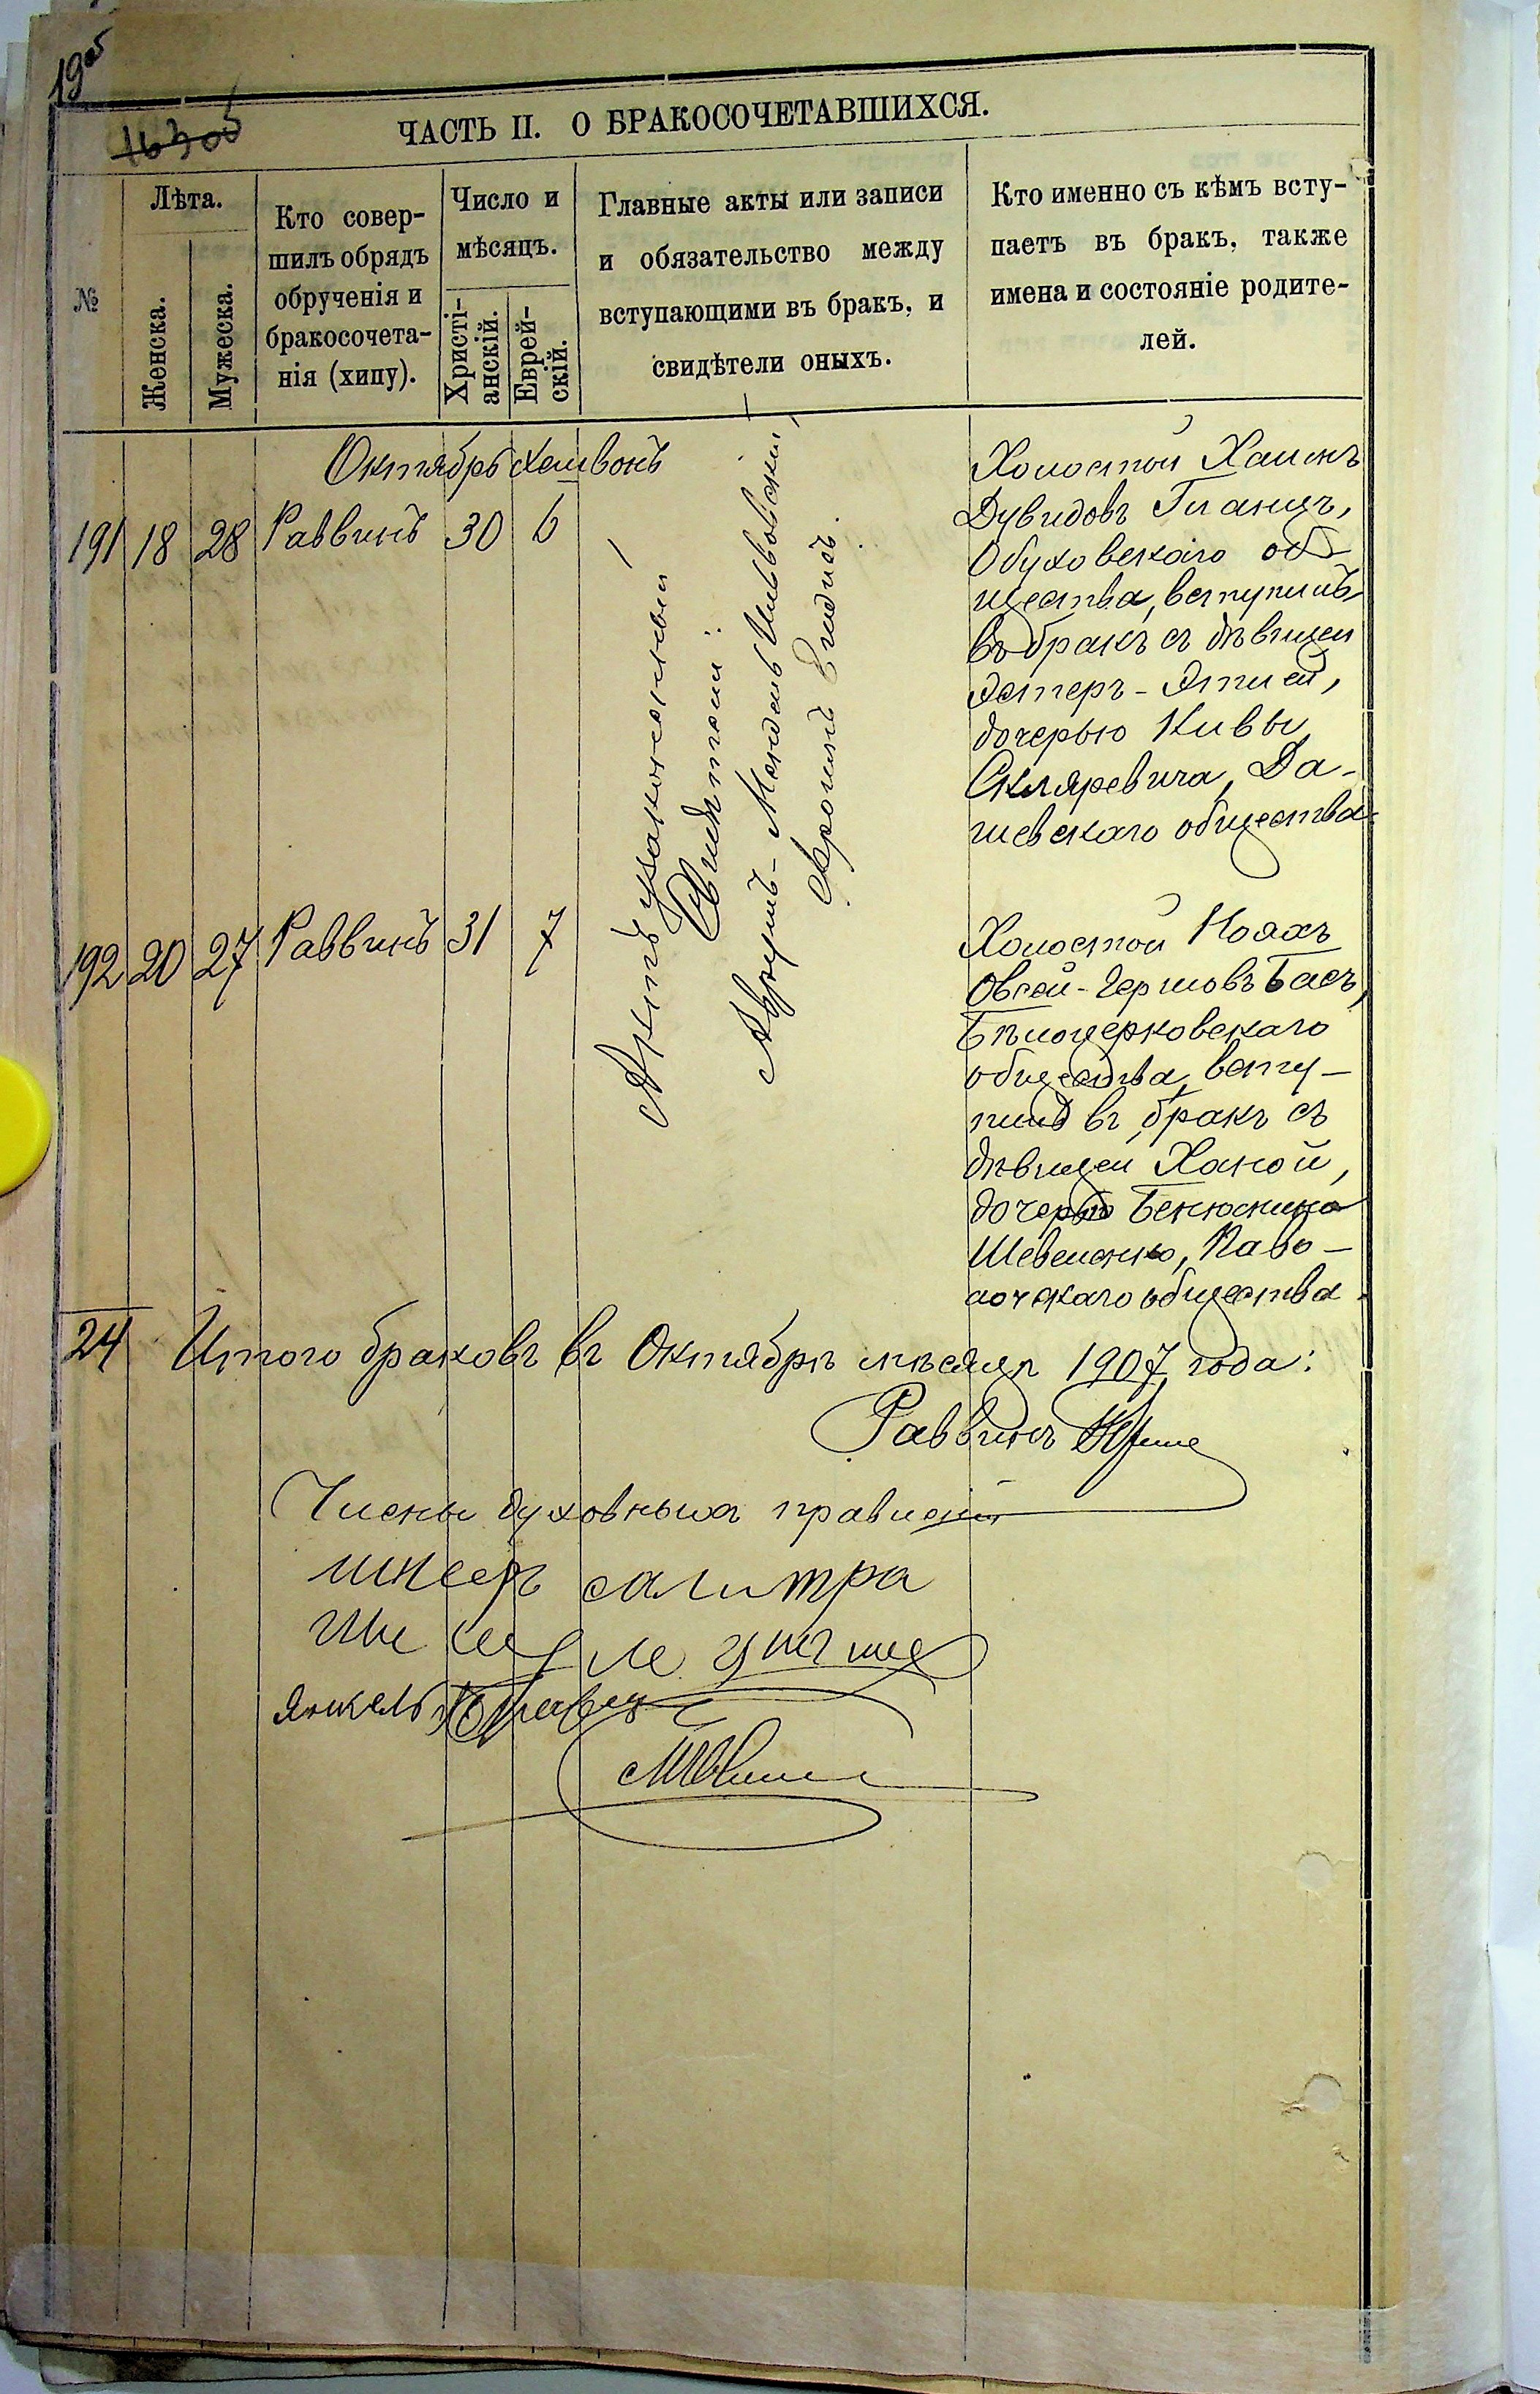 19об
16305
ЧАСТЬ II. О БРАКОСОЧЕТАВШИХСЯ.
№
Лѣта.
Женска.
Мужеска.
Кто совер-
шилъ обрядъ
обрученія и
бракосочета-
нія (хипу).
Число и
мѣсяцъ.
Христі-
анскій.
Еврей-
скій.
Главные акты или записи
и обязательство между
вступающими въ бракъ, и
свидѣтели оныхъ.
Кто именно съ кѣмъ всту-
паетъ въ бракъ, также
имена и состояніе родите-
лей.
Октябрь Хешвонъ
191 18 28 Раввинъ 30 6
Холостой
Дувидовъ Гланцъ,
Обуховскаго об-
щества, вступилъ
въ бракъ съ дѣвицей
Эстеръ-Этлей,
дочерью Кивы
Скляревича, Да-
шевскаго общества.
Актъ узаконенный
Свидѣтели:
Аврумъ-Мендель
Аронъ
192 20 27 Раввинъ 31 7
Холостой Ноахъ
Овсей-Гершовъ Басъ,
Бѣлоцерковскаго
общества, всту-
пилъ въ бракъ съ
дѣвицей Ханой,
дочерью
Шевеленко, Паво-
лочскаго общества.
24 Итого браковъ въ Октябрѣ мѣсяцѣ 1907 года:
Раввинъ
Члены духовныхъ правленій
салитра
Янкель